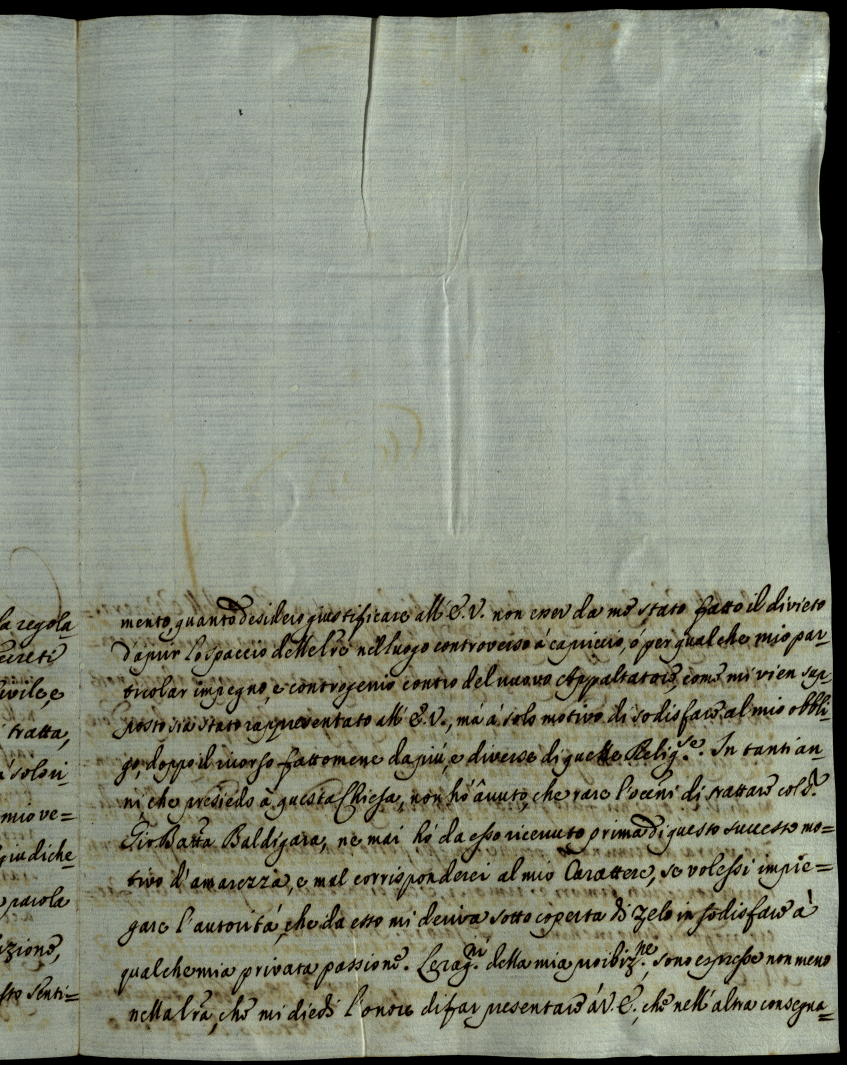 la regola=
creti
ivile, e
tratta,
à solo ri=
mio ve=
giudiche=
parola
izione,
sto senti=
mento, quanto desidero giustificare all' E. V. non esser da me stato fatto il divieto
d'apur lo spaccio dell'erbe nel luogo controverso à capriccio, ò per qualche mio par=
ticolar impegno, e controgenio contro del nuovo Appaltatore, come mi vien sup=
posto sia stato rappresentato all' E. V., mà à solo motivo di sodisfare al mio obbli=
go, doppo il ricorso fattomene da più, e diverse di quelle Relig.se. In tanti an=
ni che presiedo à questa Chiesa, non hò avuto, che rare l'occ.ni di trattare col S.r
Gio: Batta Baldigara, ne mai hò da esso ricevuto prima di questo successo mo=
tivo d'amarezza, e mal corrisponderei al mio Carattere, se volessi impie=
gare l'autorità, che da esso mi deriva sotto coperta di zelo in sodisfare à
qualche mia privata passione. Le rag.ni della mia proibiz.ne sono espresse non meno
nella lr̃a, che mi diedi l'onore di far presentare à V. E., che nell'altra consegna=